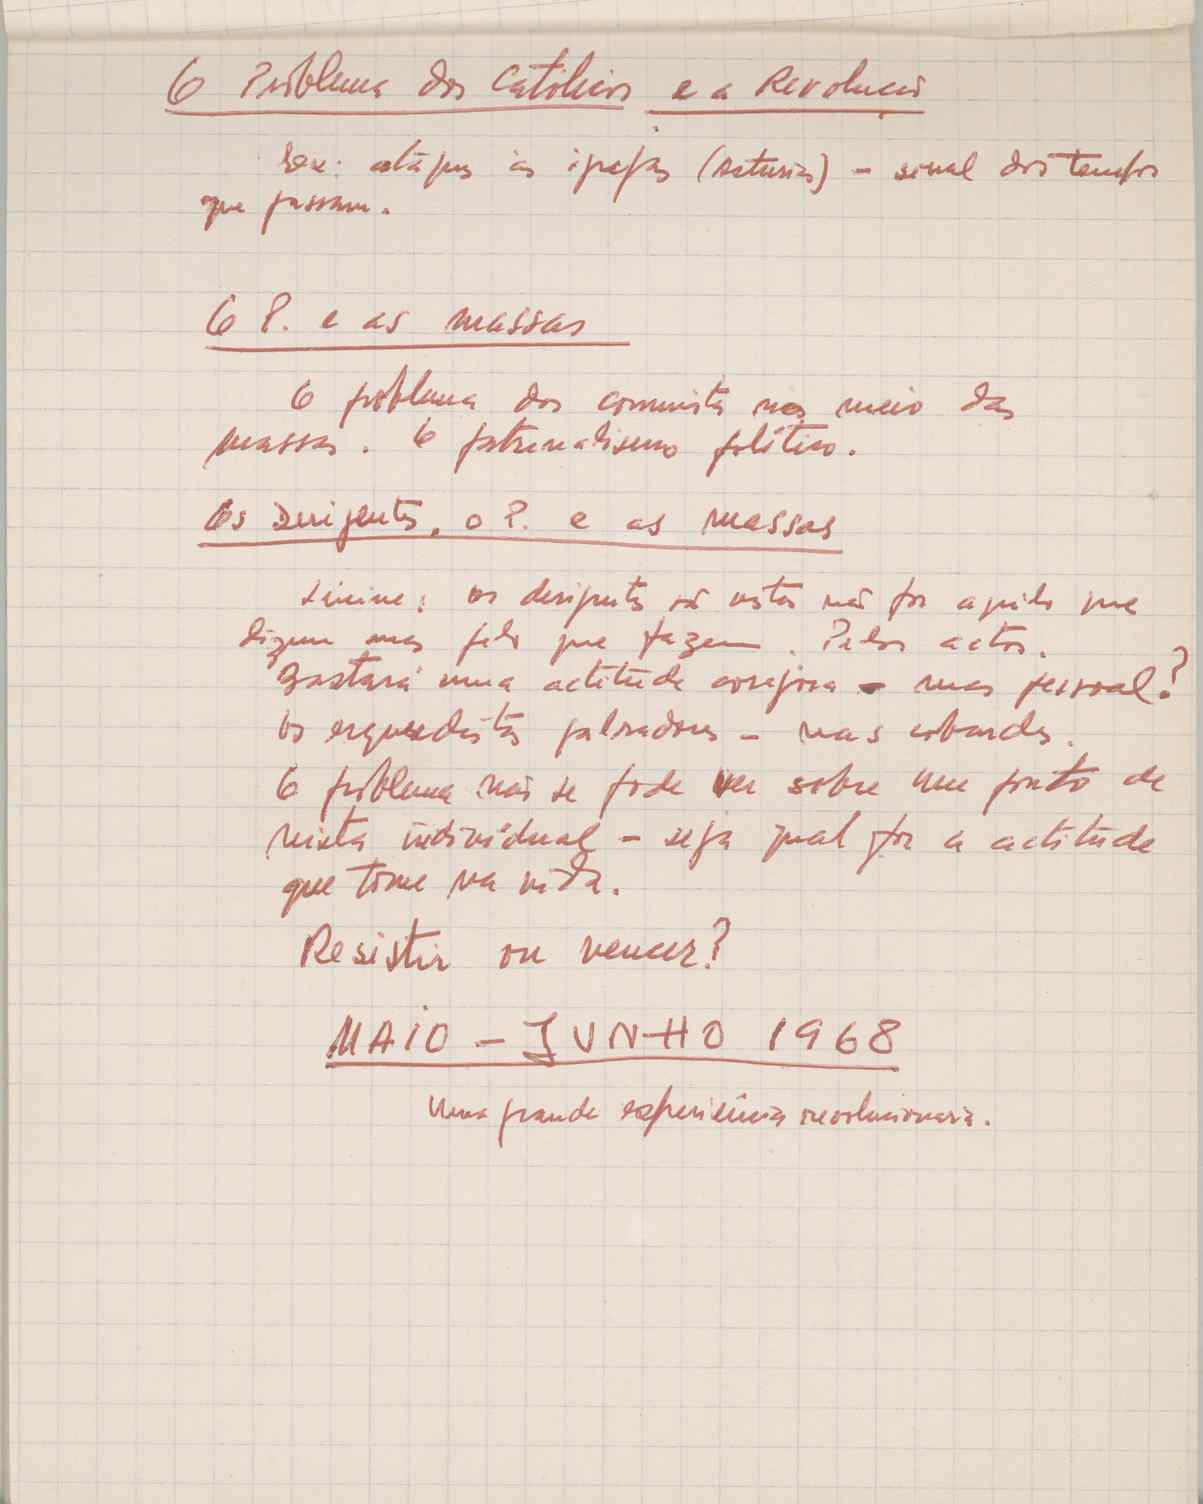 O Problema dos Católicos e a Revolução
Sex: ataques às igrejas (Asturias) – sinal dos tempos
que passam.
O P. e as massas
O problema dos comunistas no meio das
massas. O paternalismo político.
Os Dirigentes, o P. e as massas
Lénine: os dirigentes são vistos não por aquilo que
dizem mas pelo que fazem. Pelos actos.
Bastará uma actitude corajosa – mas pessoal?
Os esquerdistas palradores – mas cobardes.
O problema não se pode ver sobre um ponto de
vista individual – seja qual for a actitude
que tome na vida.
Resistir ou vencer?
MAIO – JUNHO 1968
Uma grande experiência revolucionaria.